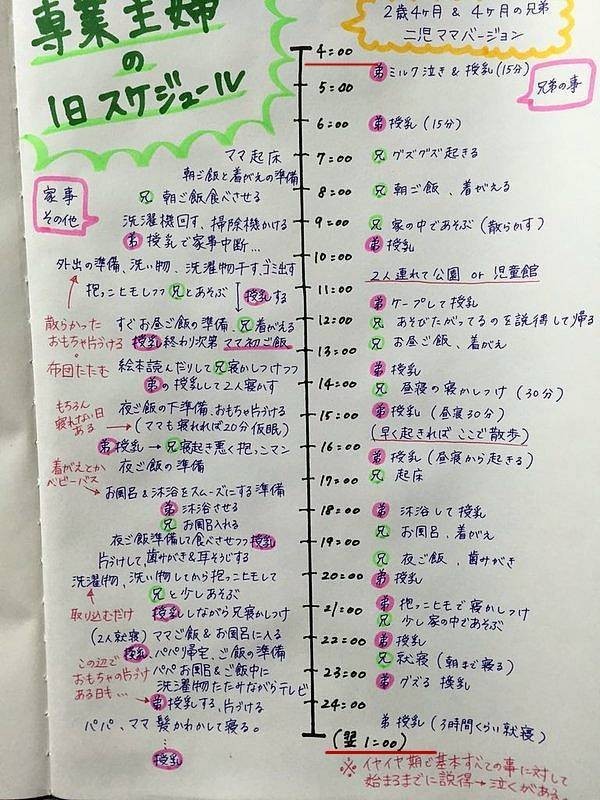 専業主婦
の
1日スケジュール
2歳4ヶ月 & 4ヶ月の兄弟
二児ママバージョン
兄弟の事
家事
その他
4:00
弟 ミルク泣き & 授乳(15分)
5:00
6:00
弟 授乳(15分)
ママ起床
7:00
兄 グズグズ起きる
朝ご飯と着がえの準備
8:00
兄 朝ご飯、着がえる
兄 朝ご飯食べさせる
洗濯機回す、掃除機かける
9:00
兄 家の中であそぶ(散らかす)
弟 授乳で家事中断…
弟 授乳
10:00
外出の準備、洗い物、洗濯物干す、ゴミ出す
2人連れて公園 or 児童館
抱っこヒモしつつ 兄とあそぶ
授乳する
11:00
弟 ケープして授乳
散らかった
おもちゃ片づける
すぐお昼ご飯の準備、兄着がえる
12:00
兄 あそびたがってるのを説得して帰る
授乳終わり次第 ママ初ご飯
兄 お昼ご飯、着がえ
13:00
布団たたむ
絵本読んだりして兄寝かしつけつつ
弟 授乳
弟の授乳して2人寝かす
14:00
兄 昼寝の寝かしつけ(30分)
もちろん
寝れない日
ある
夜ご飯の下準備、おもちゃ片づける
(ママも寝れれば20分仮眠)
15:00
弟 授乳(昼寝30分)
(早く起きればここで散歩)
弟授乳→兄寝起き悪く抱っこマン
16:00
弟 授乳(昼寝から起きる)
着がえとか
ベビーバス
夜ご飯の準備
兄 起床
17:00
お風呂&沐浴をスムーズにする準備
弟 沐浴させる
18:00
弟 沐浴して授乳
兄 お風呂入れる
兄 お風呂、着がえ
夜ご飯準備して食べさせつつ授乳
19:00
片づけして、歯みがき&耳そうじする
兄 夜ご飯、歯みがき
洗濯物、洗い物してから抱っこヒモして
20:00
弟 授乳
兄と少しあそぶ
取り込むだけ
授乳しながら兄寝かしつけ
21:00
弟 抱っこヒモで寝かしつけ
兄 少し家の中であそぶ
(2人就寝) ママご飯&お風呂に入る
22:00
弟 授乳
授乳 パパ帰宅、ご飯の準備
兄 就寝(朝まで寝る)
この辺で
おもちゃの片づけ
ある日も…
パパお風呂&ご飯中に
洗濯物たたみながらテレビ
23:00
弟 グズる 授乳
弟 授乳する、片づける
24:00
パパ、ママ髪かわかして寝る。
弟 授乳(3時間くらい就寝)
…
授乳
(翌1:00)
※イヤイヤ期で基本すべての事に対して
始まるまでに説得→泣くがある。